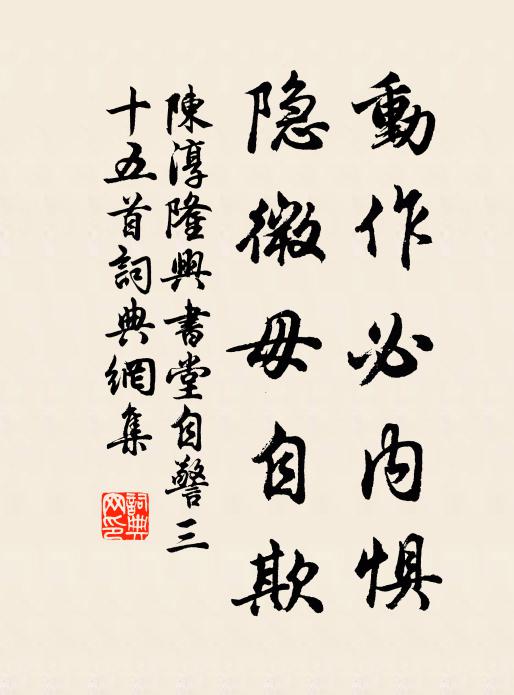 動作必内惧
隐微毋自欺
陳淳隆興書堂自警三
十五首詞典網集
詞典网印